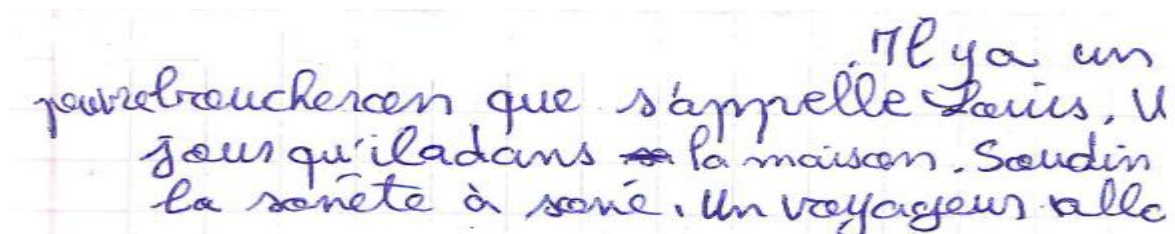 Il y a un
pauvrebroucheron que s'appelle Louis. U
jour qu'iladans la maison. Soudin
la sonéte à soné. Un voyageur alla